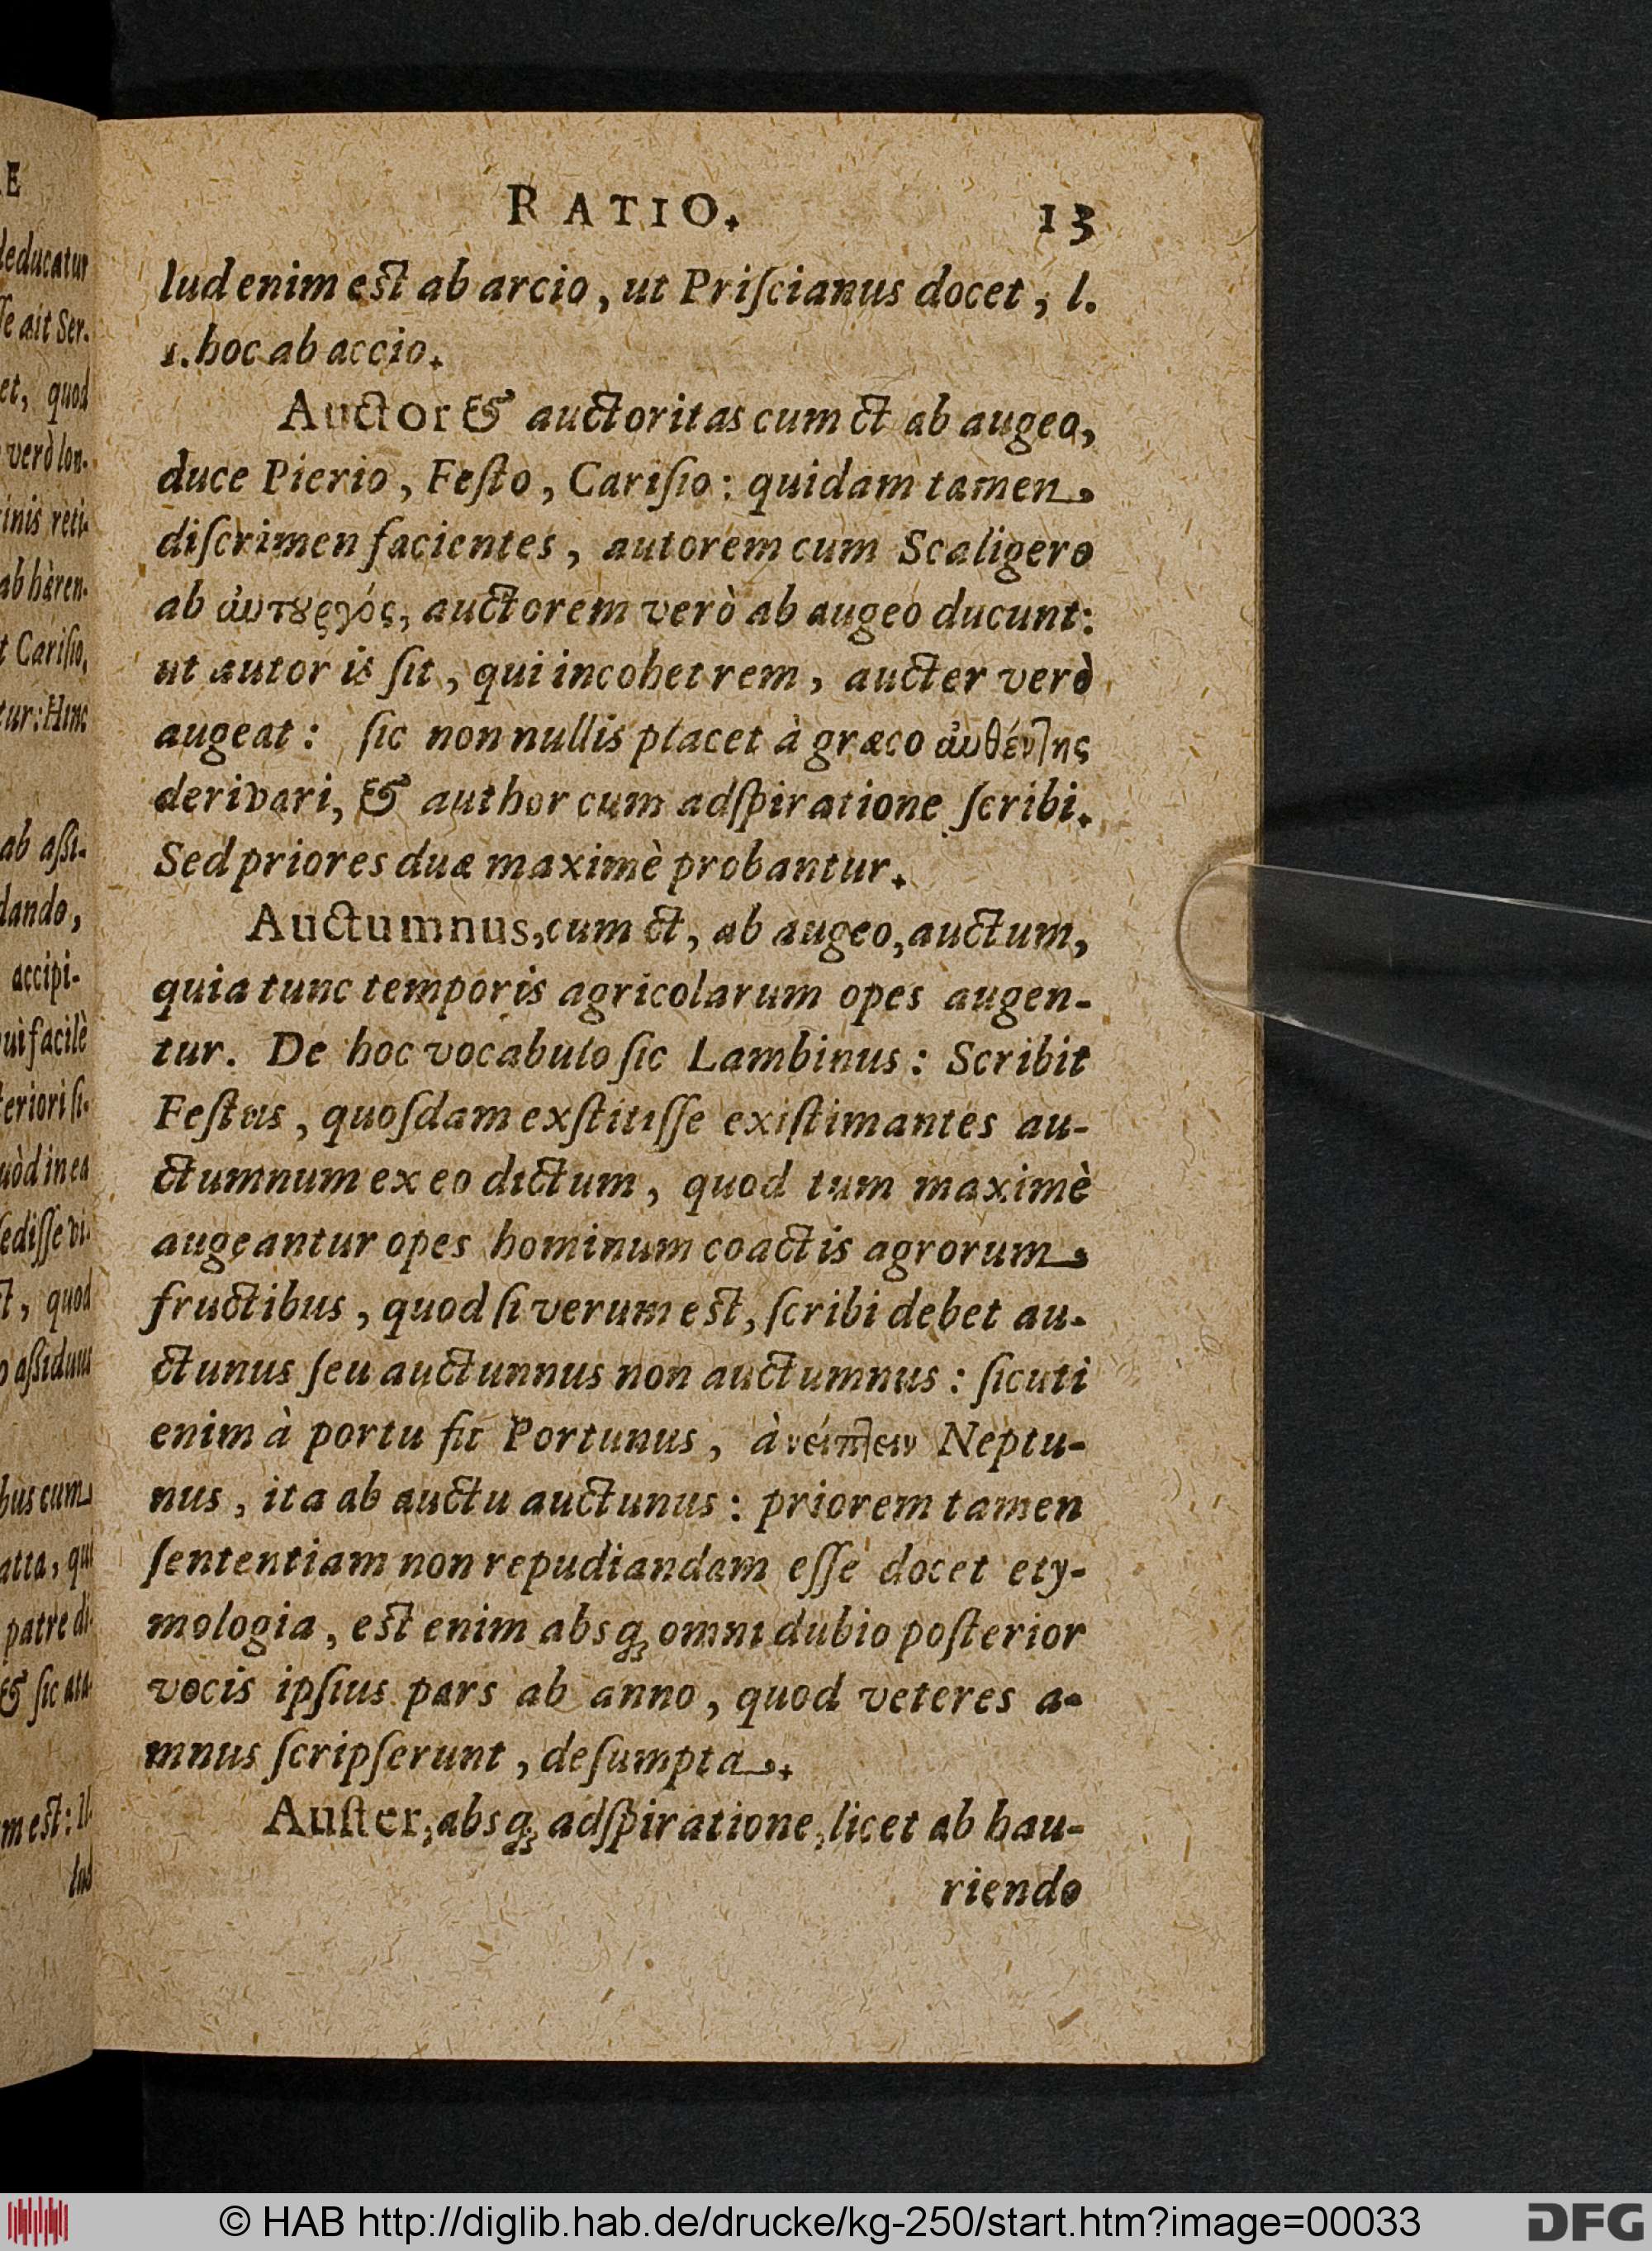 E
RATIO. 13
deducatur
ſſe ait Ser.
et, quod
verò lon-
inis reti-
ab hæren-
t Cariſio,
tur: Hinc
ab aſſi-
dando,
accipi-
ui facilè
teriori ſi-
uòd in ea
ſediſſe vi-
ſt, quod
o aſſiduus
bus cum
atta, qui
patre di-
& ſic ata-
m est: Il-
lud
lud enim est ab arcio, ut Priſcianus docet, l.
1. hoc ab accio.
Auctor & auctoritas cum ct ab augeo,
duce Pierio, Feſto, Cariſio: quidam tamen
diſcrimen facientes, autorem cum Scaligero
ab ἀυτουργός, auctorem verò ab augeo ducunt:
ut autor is ſit, qui incohet rem, aucter verò
augeat: ſic nonnullis placet à græco ἀυθέντης
derivari, & author cum adſpiratione ſcribi.
Sed priores duæ maximè probantur.
Auctumnus, cum ct, ab augeo, auctum,
quia tunc temporis agricolarum opes augen-
tur. De hoc vocabulo ſic Lambinus: Scribit
Feſtus, quoſdam exſtitiſſe exiſtimantes au-
ctumnum ex eo dictum, quod tum maximè
augeantur opes hominum coactis agrorum
fructibus, quod ſi verum est, ſcribi debet au-
ctunus ſeu auctunnus non auctumnus: ſicuti
enim à portu fit Portunus, à νείπτειν Neptu-
nus, ita ab auctu auctunus: priorem tamen
ſententiam non repudiandam eſſe docet ety-
mologia, est enim absq; omni dubio poſterior
vocis ipſius pars ab anno, quod veteres a-
mnus ſcripſerunt, deſumpta.
Auſter, absq; adſpiratione, licet ab hau-
riendo
© HAB http://diglib.hab.de/drucke/kg-250/start.htm?image=00033
DFG